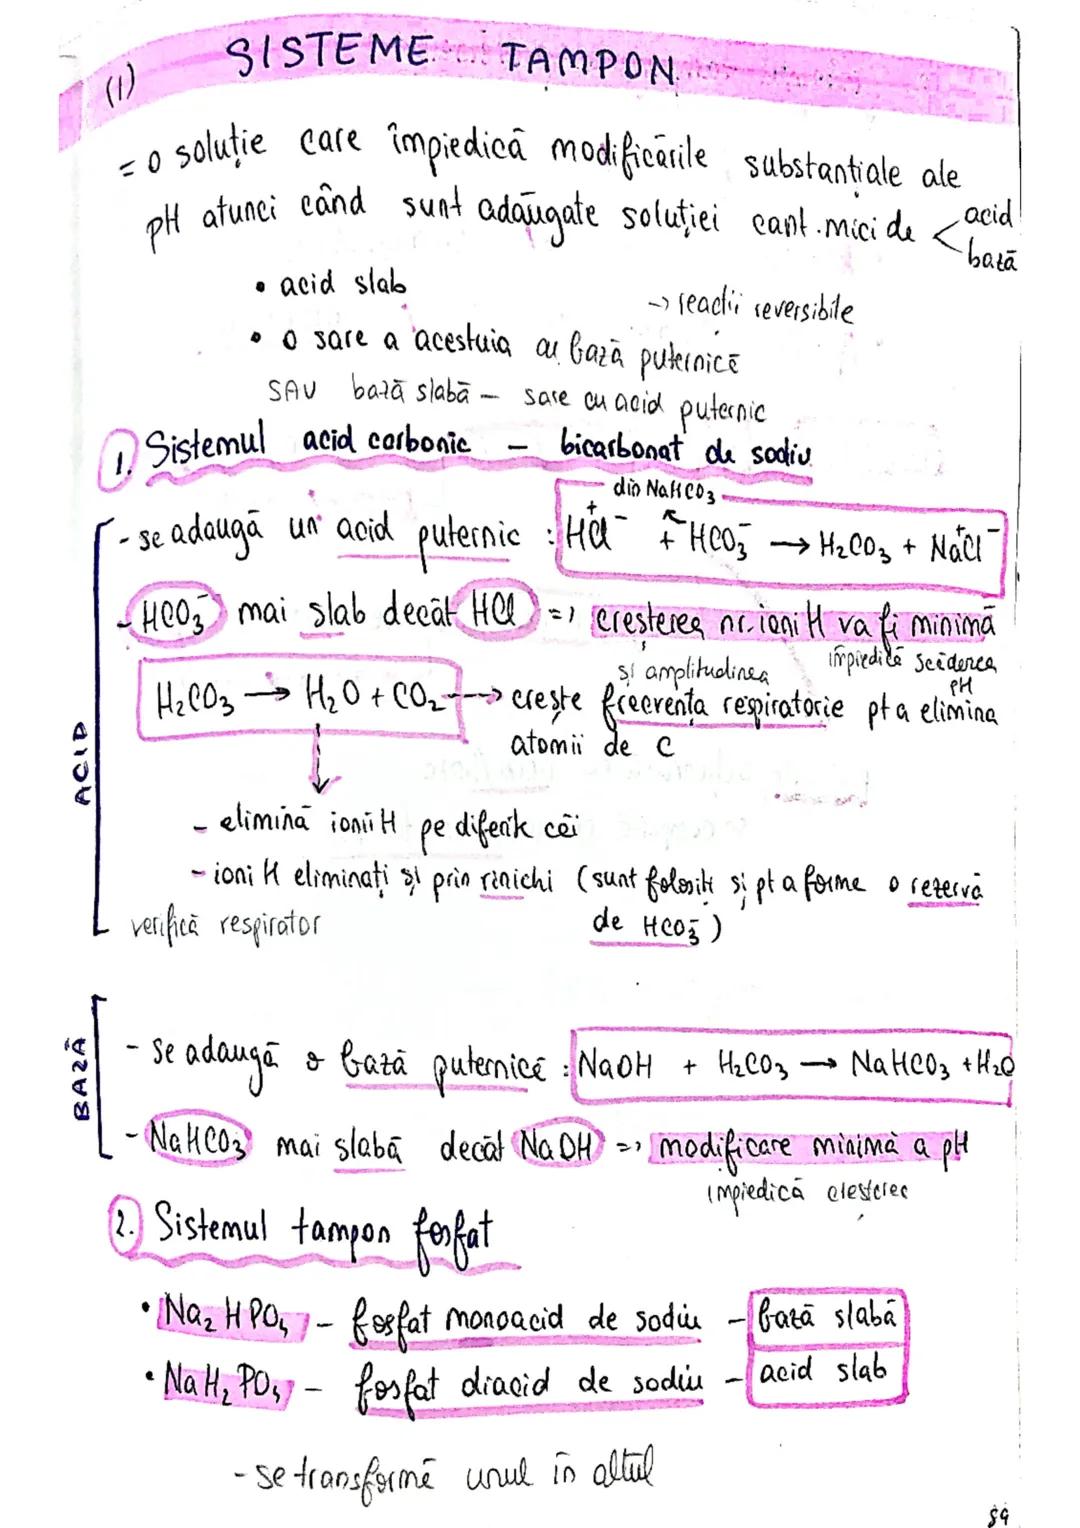 (1) SISTEME TAMPON
= o soluție care împiedică modificările substanțiale ale
pH atunci când sunt adăugate soluției cant. mici de < acid
bază
• acid slab
→ reacții reversibile
• o sare a acestuia cu bază puternică
SAU bază slabă – sare cu acid puternic
1. Sistemul acid carbonic – bicarbonat de sodiu
din NaHCO3
- se adaugă un acid puternic : H⁺Cl⁻ + HCO3⁻ → H2CO3 + Na⁺Cl⁻
- HCO3⁻ mai slab decât HCl => creșterea nr. ioni H va fi minimă
împiedică scăderea pH
și amplitudinea
H2CO3 → H2O + CO2 → crește frecvența respiratorie pt a elimina
atomii de C
ACID
- elimină ionii H pe diferite căi
- ioni H eliminați și prin rinichi (sunt folosiți și pt a forma o rezervă
verifică respirator de HCO3⁻)
BAZĂ
- se adaugă o bază puternică : NaOH + H2CO3 → NaHCO3 + H2O
- NaHCO3 mai slabă decât NaOH => modificare minimă a pH
împiedică creșterea
2. Sistemul tampon fosfat
• Na2HPO4 – fosfat monoacid de sodiu – bază slabă
• NaH2PO4 – fosfat diacid de sodiu – acid slab
- se transformă unul în altul
89